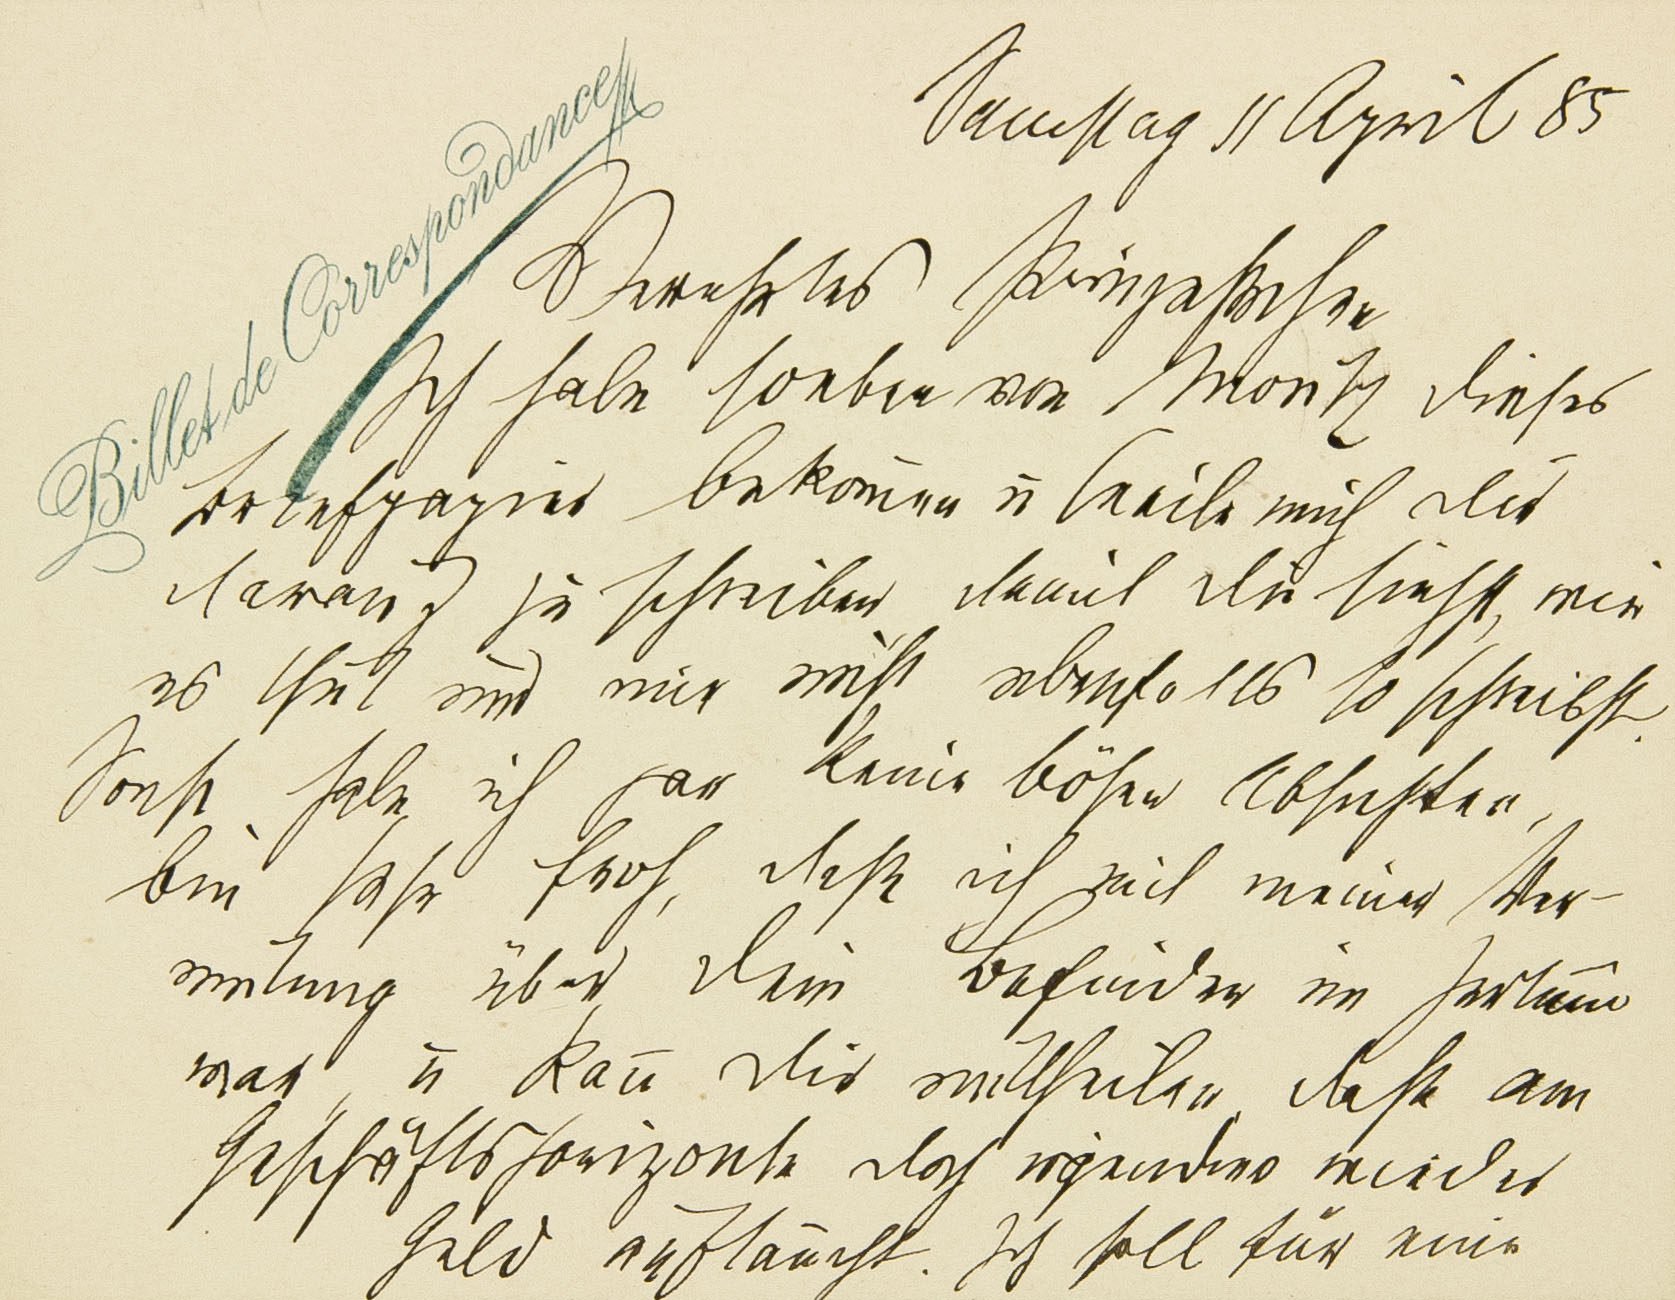 Billet de Correspondance
Samstag 11 April 85
Verehrtes Prinzeßchen
Ich habe soeben von Moritz dieses
Briefpapier bekomm̄en u beeile mich dir
darauf zu schreiben damit du siehst, wie
es thut und mir nicht ebenfalls so schreibst.
Sonst habe ich gar keine bösen Absichten,
bin sehr froh, daß ich mit meiner Ver-
mutung über dein Befinden im Irrtum
war, u kan̄ dir mittheilen, daß am
Geschäftshorizonte doch irgendwo wieder
Geld auftaucht. Ich soll für eine